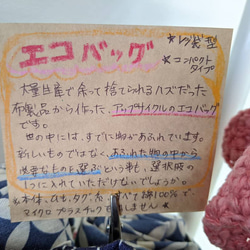 エコバッグ
*レジ袋型
*コンパクトタイプ
大量生産で余って捨てられるハズだった
布製品から作った、アップサイクルのエコバッグ
です。
世の中には、すでに物があふれています。
新しいものではなく、あふれた物の中から
必要なものを選ぶという事も、選択肢の
1つに入れていただけないでしょうか。
*本体、ひも、タグ、糸、すべて綿100%で、
マイクロプラスチックでしません☆